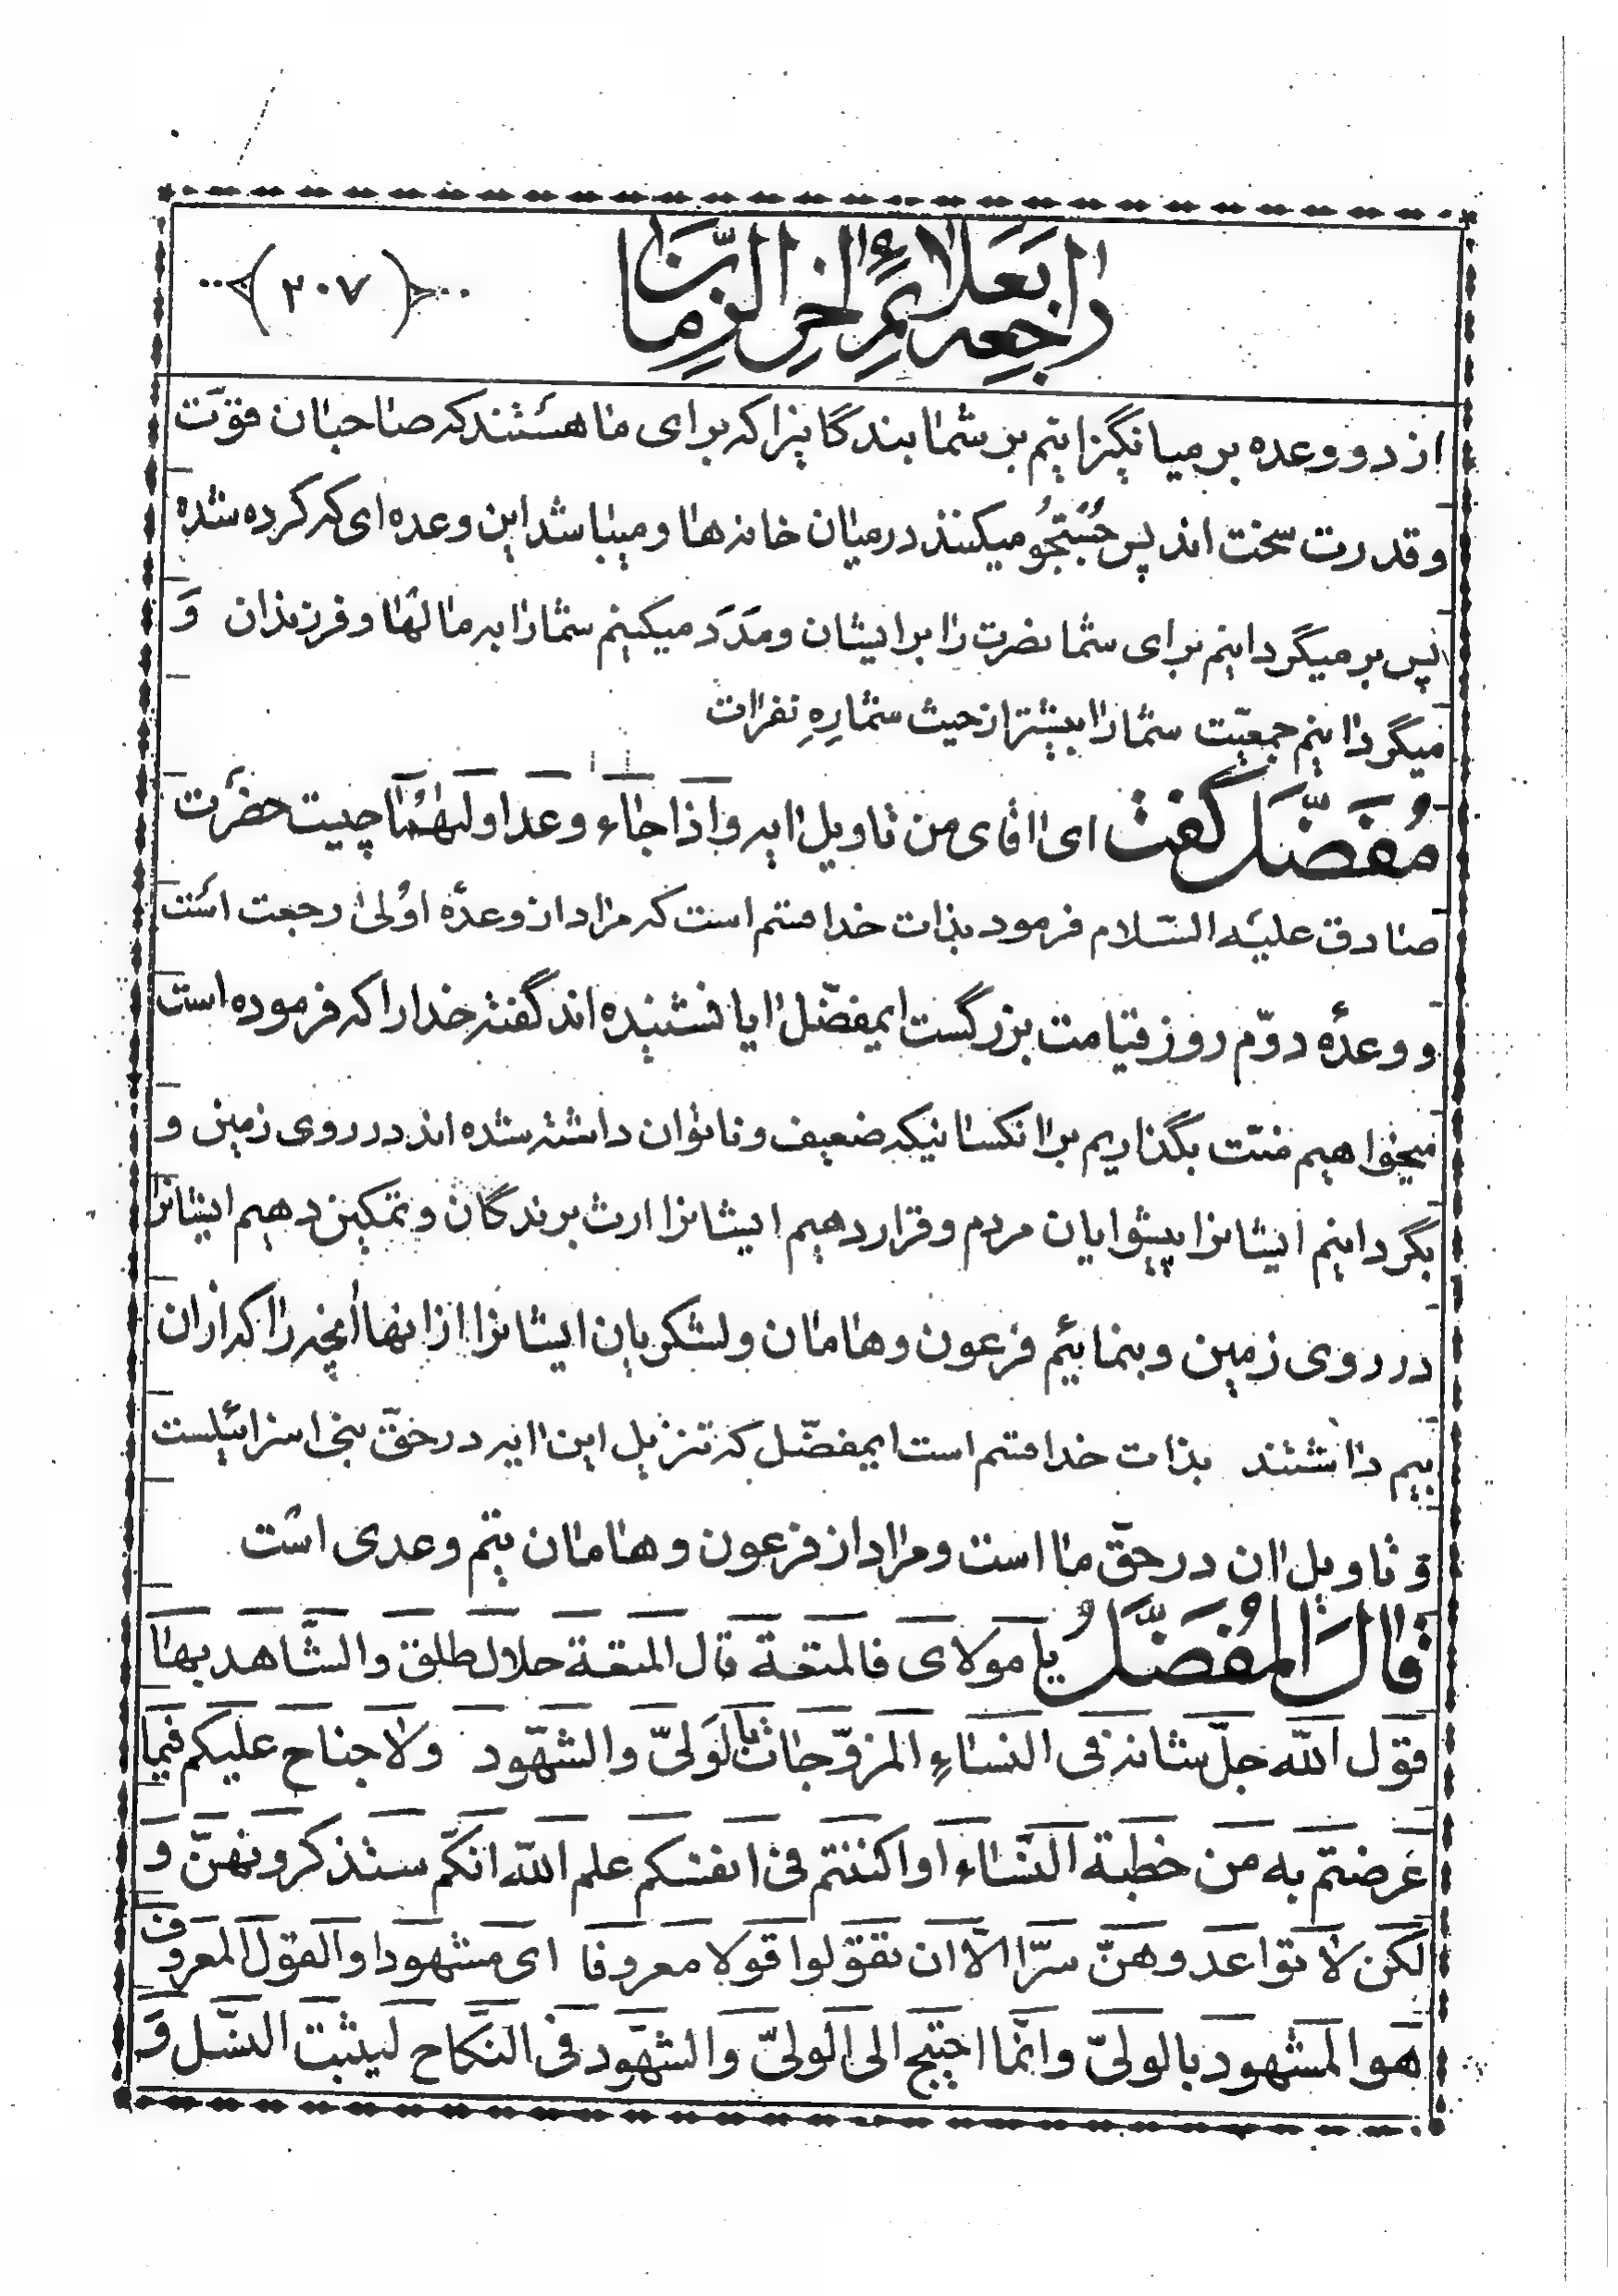 راجعه بعلائم اخر الزمان
(۲۰۷)
از دو وعده برمیانگیزانیم بر شما بندگانیرا که برای ما هستند که صاحبان قوّت
و قدرت سخت اند پس جُستجُو میکنند در میان خانه ها و میباشد این وعده ای که کرده شده
پس برمیگردانیم برای شما نصرت را بر ایشان و مَدَد میکنیم شما را به مالها و فرزندان وَ
میگردانیم جمعیّت شما را بیشتر از حیث شمارِهِ نفرات
مُفَضَّل گفت ای اقای من تاویل ایه و اذا جاء وعد اولیهُما چیست حضرت
صادق علیه السّلام فرمود بذات خدا قسم است که مراد از وعدهٔ اوُلی رجعت است
و وعدهٔ دوّم روز قیامت بزرگست ایمفضّل ایا نشنیده اند گفته خدا را که فرموده است
میخواهیم منّت بگذاریم بر انکسانیکه ضعیف و ناتوان داشته شده اند در روی زمین و
بگردانیم ایشانرا پیشوایان مردم و قرار دهیم ایشانرا ارث برندگان و تمکین دهیم ایشانرا
در روی زمین و بنمائیم فرعون و هامان و لشکریان ایشانرا از انها انچه را که از ان
بیم داشتند بذات خدا قسم است ایمفضّل که تنزیل این ایه در حقّ بنی اسرائیلست
و تاویل ان در حقّ ما است و مراد از فرعون و هامان یتم و عدی است
قالَ المُفَضَّلُ یا مولای فالمتعة قال المتعة حلال طلق و الشّاهد بها
قول الله جلّ شانه فی النساءِ المزوّجات بالوَلیّ و الشهود ولا جناح علیکم فیما
عَرضتم به من خطبة النّساء او اکننتم فی انفسکم علم الله انکّم ستذکرونهنّ و
لکن لا تواعدوهنّ سرّا الّا ان تقولوا قولا معروفا ای مشهودا و القول المعروف
هو المشهود بالولیّ و انّما احتیج الی الولیّ و الشهود فی النّکاح لیثبت النّسل و